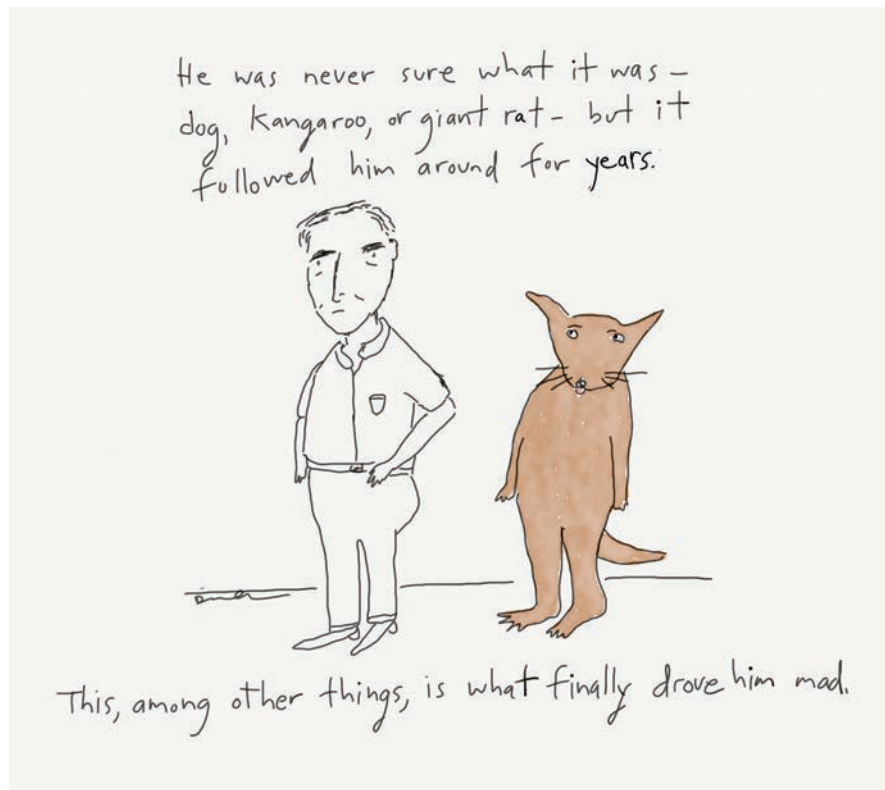 He was never sure what it was –
dog, Kangaroo, or giant rat – but it
followed him around for years.
This, among other things, is what finally drove him mad.